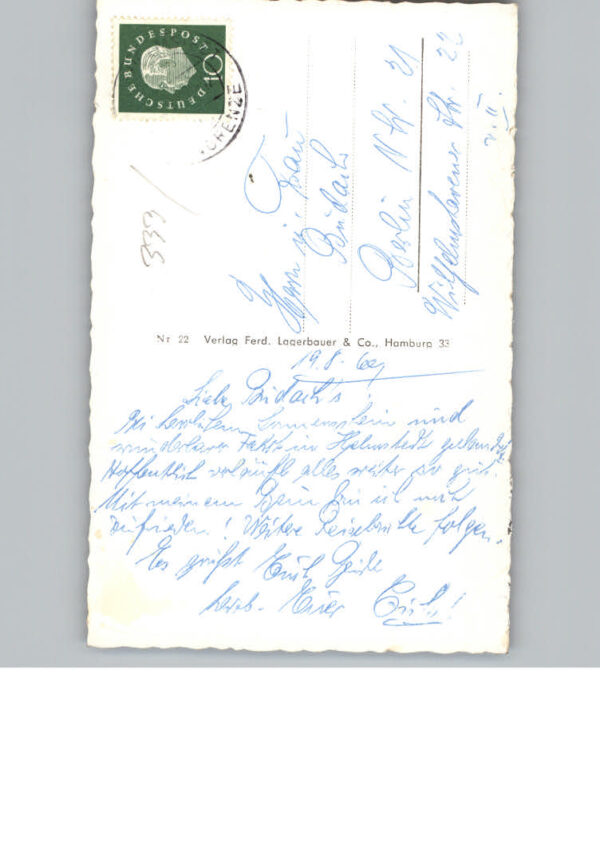 DEUTSCHE BUNDESPOST
10
GRENZE
339
Herrn u. Frau
Budach
Berlin NW. 21
Wilhelmshavener Str. 22
v. II.
Nr 22 Verlag Ferd. Lagerbauer & Co., Hamburg 33
19.8.60
Liebe Budach's!
Bei herrlichem Sonnenschein und
wunderbarer Fahrt in Helmstedt gelandet.
Hoffentlich verläuft alles weiter so gut.
Mit meinem Bein bin ich mit
zufrieden! Weitere Reiseberichte folgen.
Es grüßt Euch Beide
herzl. Euer